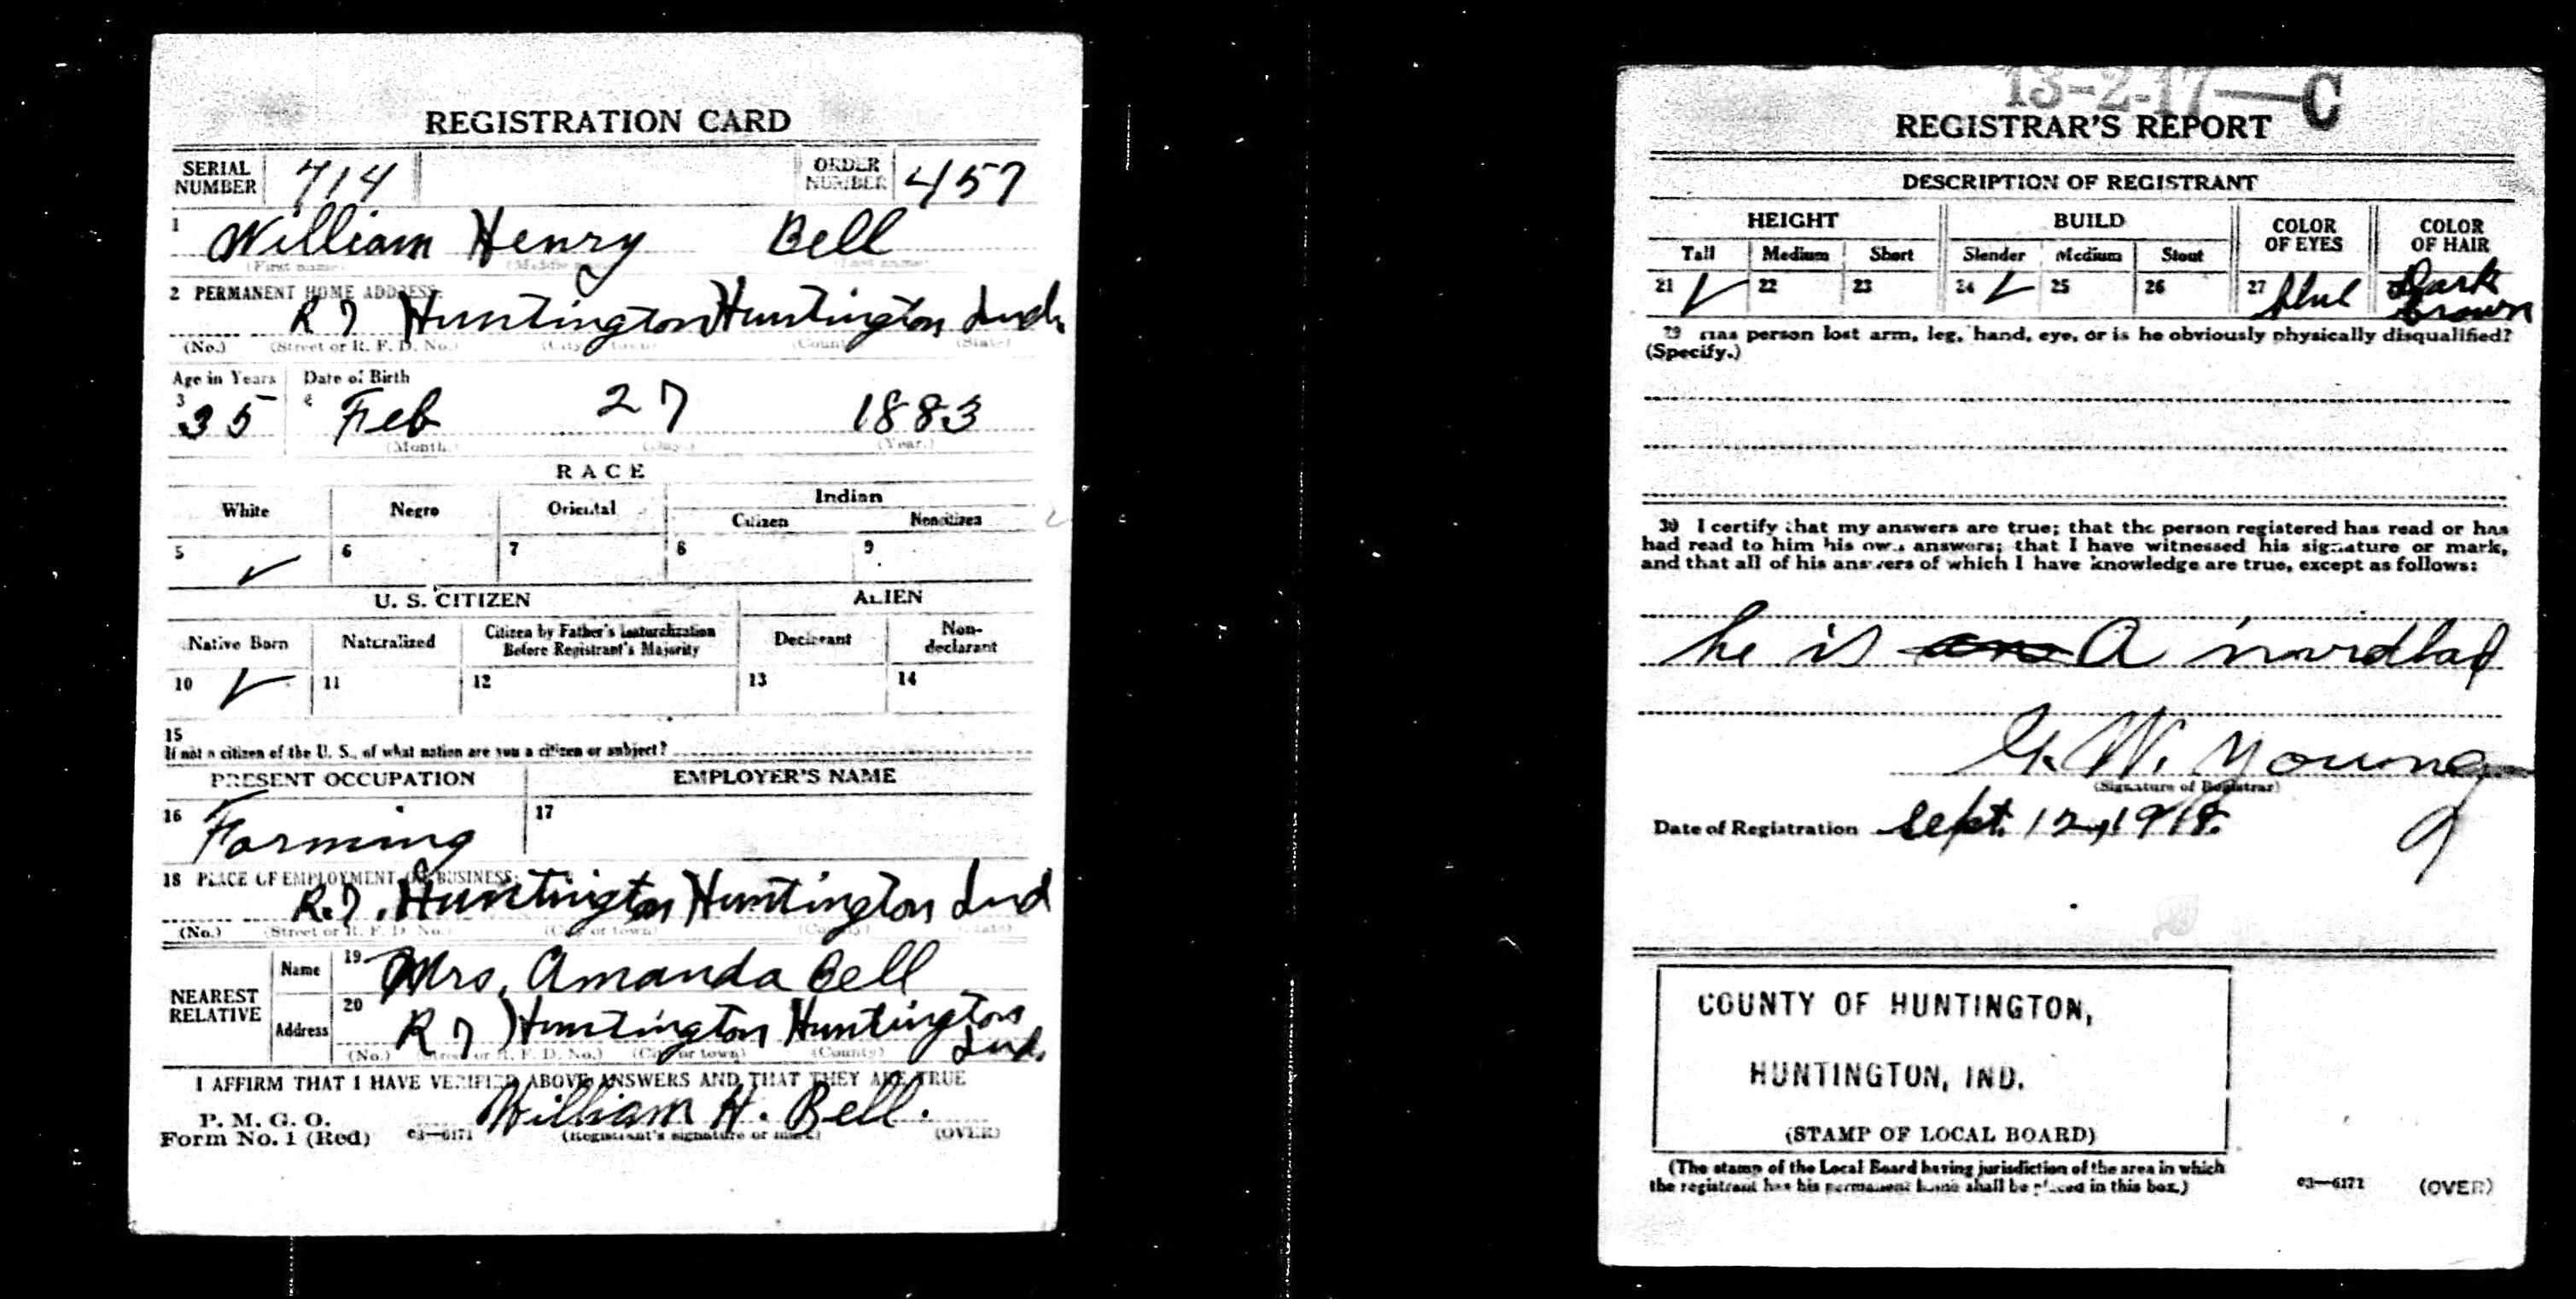 REGISTRATION CARD
SERIAL NUMBER 714 ORDER NUMBER 457
1 William Henry Bell
(First name) (Middle name) (Last name)
2 PERMANENT HOME ADDRESS:
R 7 Huntington Huntington Ind.
(No.) (Street or R. F. D. No.) (City or town) (County) (State)
Age in Years Date of Birth
3 35 4 Feb 27 1883
(Month.) (Day.) (Year.)
RACE
White Negro Oriental Indian
Citizen Noncitizen
5 ✓ 6 7 8 9
U. S. CITIZEN ALIEN
Native Born Naturalized Citizen by Father's Naturalization Before Registrant's Majority Declarant Non-declarant
10 ✓ 11 12 13 14
15
If not a citizen of the U. S., of what nation are you a citizen or subject?
PRESENT OCCUPATION EMPLOYER'S NAME
16 Farming 17
18 PLACE OF EMPLOYMENT OR BUSINESS:
R.7. Huntington Huntington Ind
(No.) (Street or R. F. D. No.) (City or town) (County) (State)
NEAREST RELATIVE
Name 19 Mrs. Amanda Bell
Address 20 R 7 Huntington Huntington Ind.
(No.) (Street or R. F. D. No.) (City or town) (County)
I AFFIRM THAT I HAVE VERIFIED ABOVE ANSWERS AND THAT THEY ARE TRUE
P. M. G. O.
Form No. 1 (Red) 03—6171 William H. Bell.
(Registrant's signature or mark) (OVER)
13-2-17—C
REGISTRAR'S REPORT
DESCRIPTION OF REGISTRANT
HEIGHT BUILD COLOR OF EYES COLOR OF HAIR
Tall Medium Short Slender Medium Stout
21 ✓ 22 23 24 ✓ 25 26 27 blue Dark Brown
29 Has person lost arm, leg, hand, eye, or is he obviously physically disqualified?
(Specify.)
30 I certify that my answers are true; that the person registered has read or has
had read to him his own answers; that I have witnessed his signature or mark,
and that all of his answers of which I have knowledge are true, except as follows:
he is A
G. W. Young
(Signature of Registrar)
Date of Registration Sept. 12, 1918.
COUNTY OF HUNTINGTON,
HUNTINGTON, IND.
(STAMP OF LOCAL BOARD)
(The stamp of the Local Board having jurisdiction of the area in which
the registrant has his permanent home shall be placed in this box.)
03—6171 (OVER)